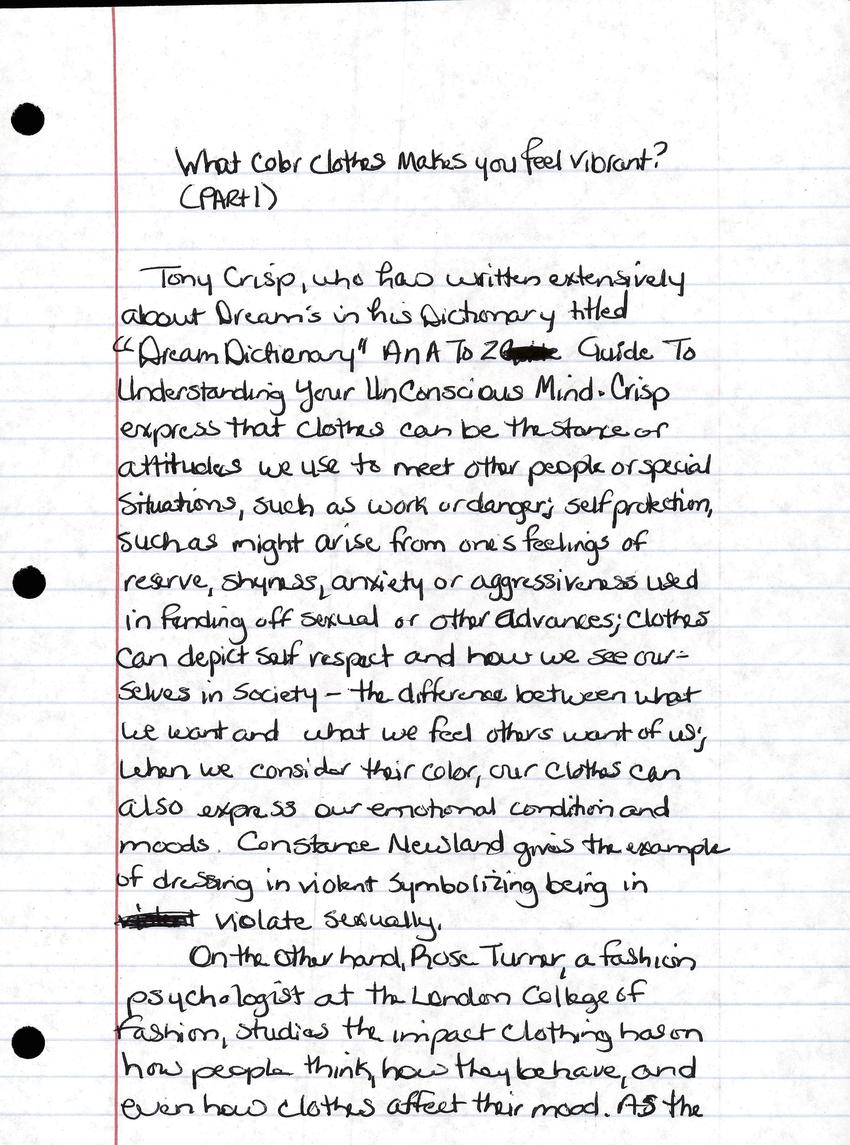 What Color Clothes Makes you feel Vibrant?
(PARt 1)
Tony Crisp, who has written extensively
about Dream's in his Dictionary titled
"Dream Dictionary" An A To Z Guide To
Understanding Your UnConscious Mind. Crisp
express that clothes can be the stance or
attitudes we use to meet other people or special
Situations, such as work or danger; self protection,
such as might arise from one's feelings of
reserve, shyness, anxiety or aggressiveness used
in fending off sexual or other Advances; Clothes
Can depict self respect and how we see our-
selves in Society - the difference between what
we want and what we feel others want of us;
when we consider their color, our clothes can
also express our emotional condition and
moods. Constance Newland gives the example
of dressing in violent Symbolizing being in
violate sexually.
On the other hand, Rose Turner, a fashion
psychologist at the London College of
Fashion, studies the impact clothing has on
how people think, how they behave, and
even how clothes affect their mood. AS the